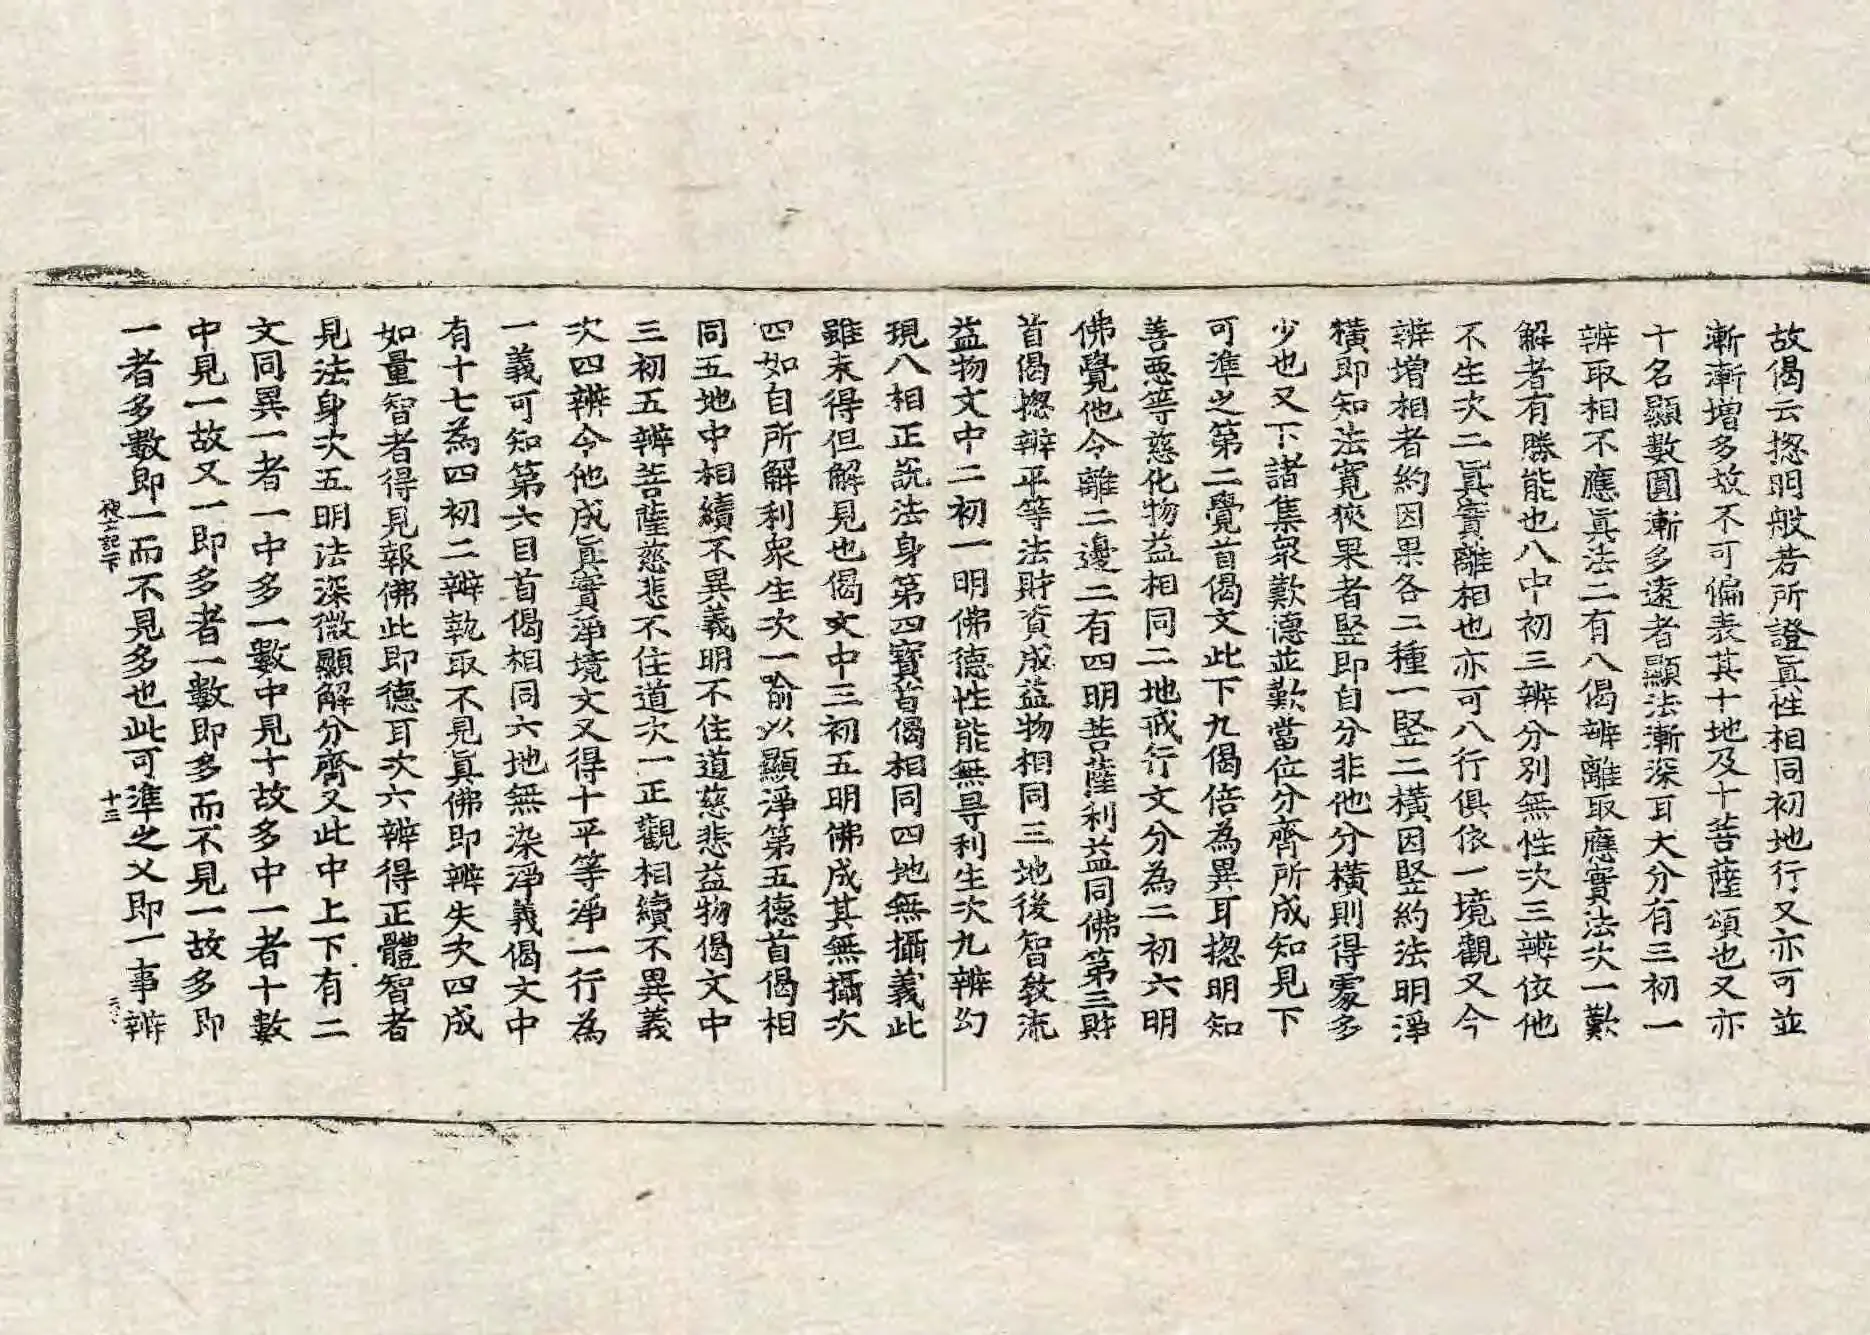 故偈云揔明般若所證眞性相同初地行又亦可並
漸漸增多故不可偏表其十地及十菩薩頌也又亦
十名顯數圓漸多遠者顯法漸深耳大分有三初一
辨取相不應眞法二有八偈辨離取應實法次一歎
解者有勝能也八中初三辨分別無性次三辨依他
不生次二眞實離相也亦可八行俱依一境觀又今
辨增相者約因果各二種一竪二橫因竪約法明淨
橫即知法寬狹果者竪即自分非他分橫則得䨥多
少也又下諸集衆歎德並歎當位分齊所成知見下
可準之第二覺首偈文此下九偈倍為異耳揔明知
善惡等慈化物益相同二地戒行文分為二初六明
佛覺他令離二邊二有四明菩薩利益同佛第三財
首偈揔辨平等法財資成益物相同三地後智教流
益物文中二初一明佛德性能無㝵利生次九辨幻
現八相正說法身第四寶首偈相同四地無攝義此
雖未得但解見也偈文中三初五明佛成其無攝次
四如自所解利衆生次一喻以顯淨第五德首偈相
同五地中相續不異義明不住道慈悲益物偈文中
三初五辨菩薩慈悲不住道次一正觀相續不異義
次四辨令他成眞實淨境文又得十平等淨一行為
一義可知第六目首偈相同六地無染淨義偈文中
有十七為四初二辨執取不見眞佛即辨失次四成
如量智者得見報佛此即德耳次六辨得正體智者
見法身次五明法深微顯解分齊又此中上下有二
文同異一者一中多一數中見十故多中一者十數
中見一故又一即多者一數即多而不見一故多即
一者多數即一而不見多也此可準之又即一事辨
十三